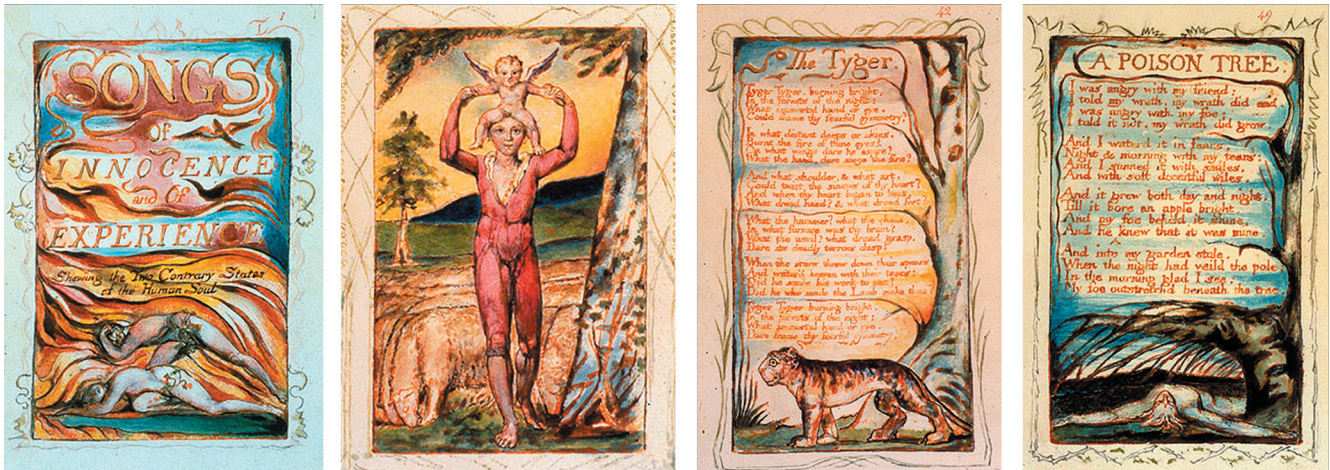 1
SONGS
OF
INNOCENCE
and Of
EXPERIENCE
Shewing the Two Contrary States
of the Human Soul
42
The Tyger.
Tyger Tyger, burning bright,
In the forests of the night:
What immortal hand or eye,
Could frame thy fearful symmetry?
In what distant deeps or skies,
Burnt the fire of thine eyes?
On what wings dare he aspire?
What the hand, dare sieze the fire?
And what shoulder, & what art,
Could twist the sinews of thy heart?
And when thy heart began to beat,
What dread hand? & what dread feet?
What the hammer? what the chain,
In what furnace was thy brain?
What the anvil? what dread grasp,
Dare its deadly terrors clasp!
When the stars threw down their spears
And water'd heaven with their tears:
Did he smile his work to see?
Did he who made the Lamb make thee?
Tyger Tyger burning bright,
In the forests of the night:
What immortal hand or eye,
Dare frame thy fearful symmetry?
49
A POISON TREE.
I was angry with my friend:
I told my wrath, my wrath did end.
I was angry with my foe:
I told it not, my wrath did grow.
And I waterd it in fears,
Night & morning with my tears:
And I sunned it with smiles,
And with soft deceitful wiles.
And it grew both day and night,
Till it bore an apple bright.
And my foe beheld it shine,
And he knew that it was mine.
And into my garden stole.
When the night had veild the pole;
In the morning glad I see,
My foe outstretchd beneath the tree.